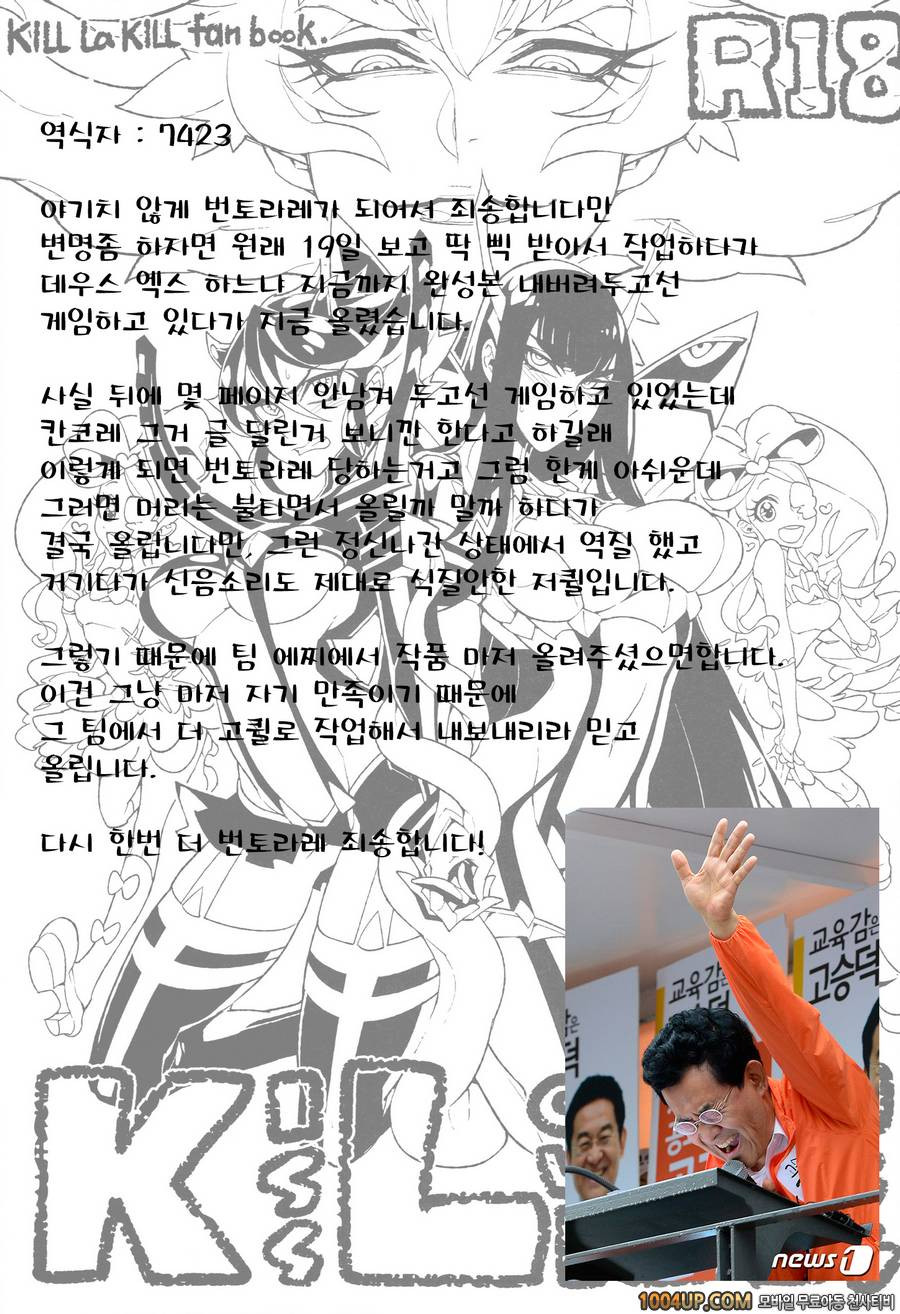 KILL La KILL fan book.
R18
역식자 : 7423
야기치 않게 번토라레가 되어서 죄송합니다만
변명좀 하자면 원래 19일 보고 딱 삑 받아서 작업하다가
데우스 엑스 하느냐 지금까지 완성본 내버려두고선
게임하고 있다가 지금 올렸습니다.
사실 뒤에 몇 페이지 안남겨 두고선 게임하고 있었는데
칸코레 그거 글 달린거 보니깐 한다고 하길래
이렇게 되면 번토라레 당하는거고 그럼 한게 아쉬운데
그러면 머리는 불타면서 올릴까 말까 하다가
결국 올립니다만, 그런 정신나간 상태에서 역질 했고
거기다가 신음소리도 제대로 식질안한 저퀄입니다.
그렇기 때문에 팀 에찌에서 작품 마저 올려주셨으면합니다.
이건 그냥 마저 자기 만족이기 때문에
그 팀에서 더 고퀄로 작업해서 내보내리라 믿고
올립니다.
다시 한번 더 번토라레 죄송합니다!
교육감은
고승덕
교육감은
KiL
news1
1004UP.COM 모바일 무료야동 천사티비